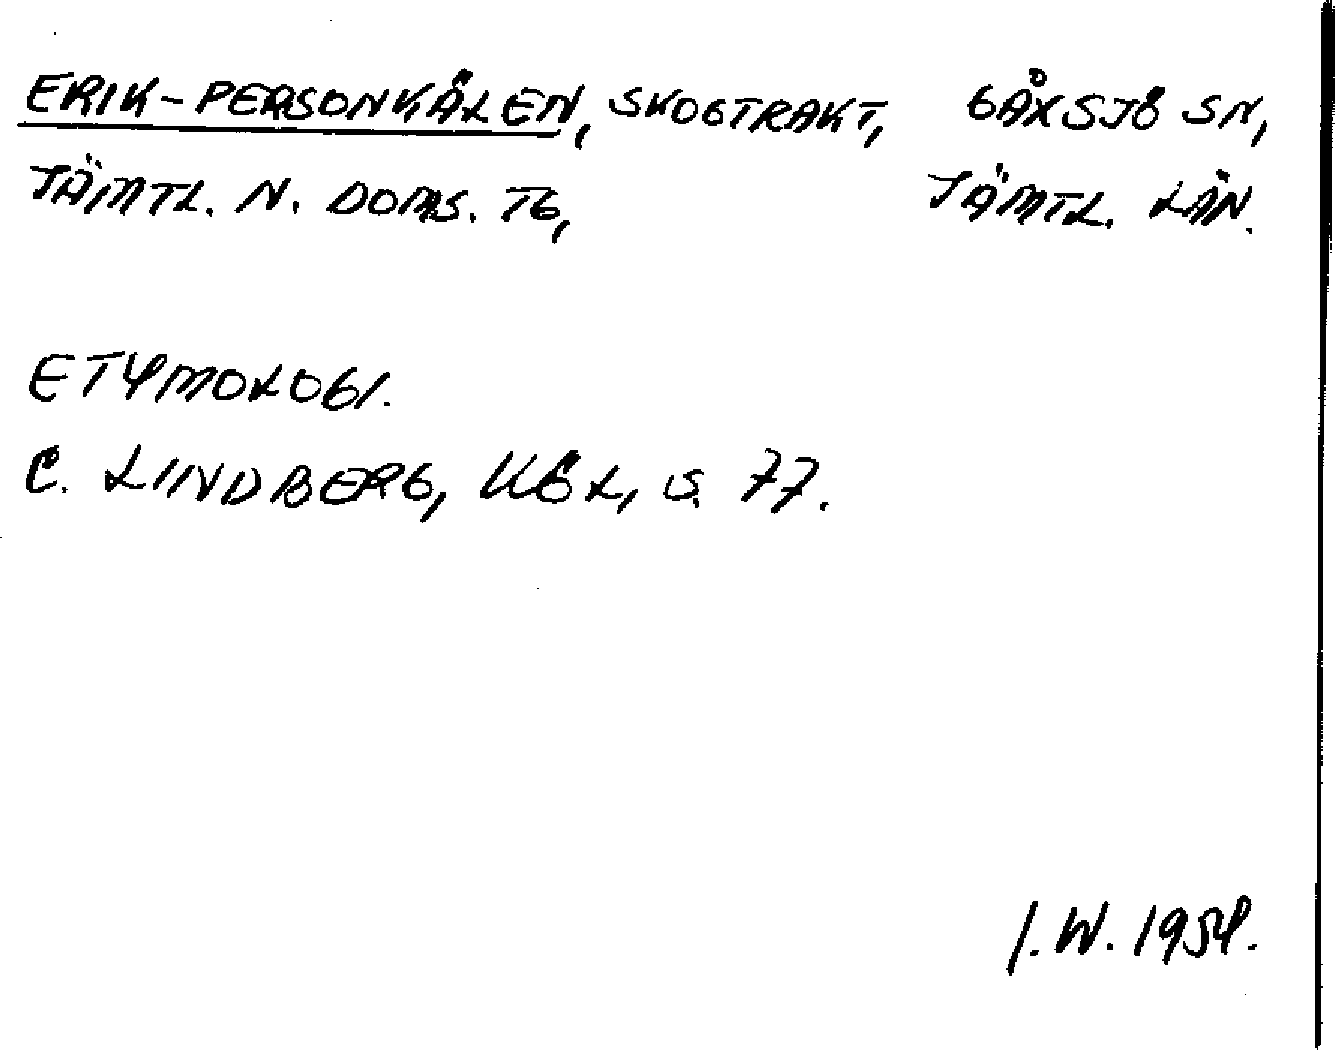 ERIK-PERSONKÅLEN, SKOGTRAKT, GÅXSJÖ SN,
JÄMTL. N. DOMS. TG, JÄMTL. LÄN.
ETYMOLOGI.
C. LINDBERG, KÖL, S. 77.
I. W. 1954.